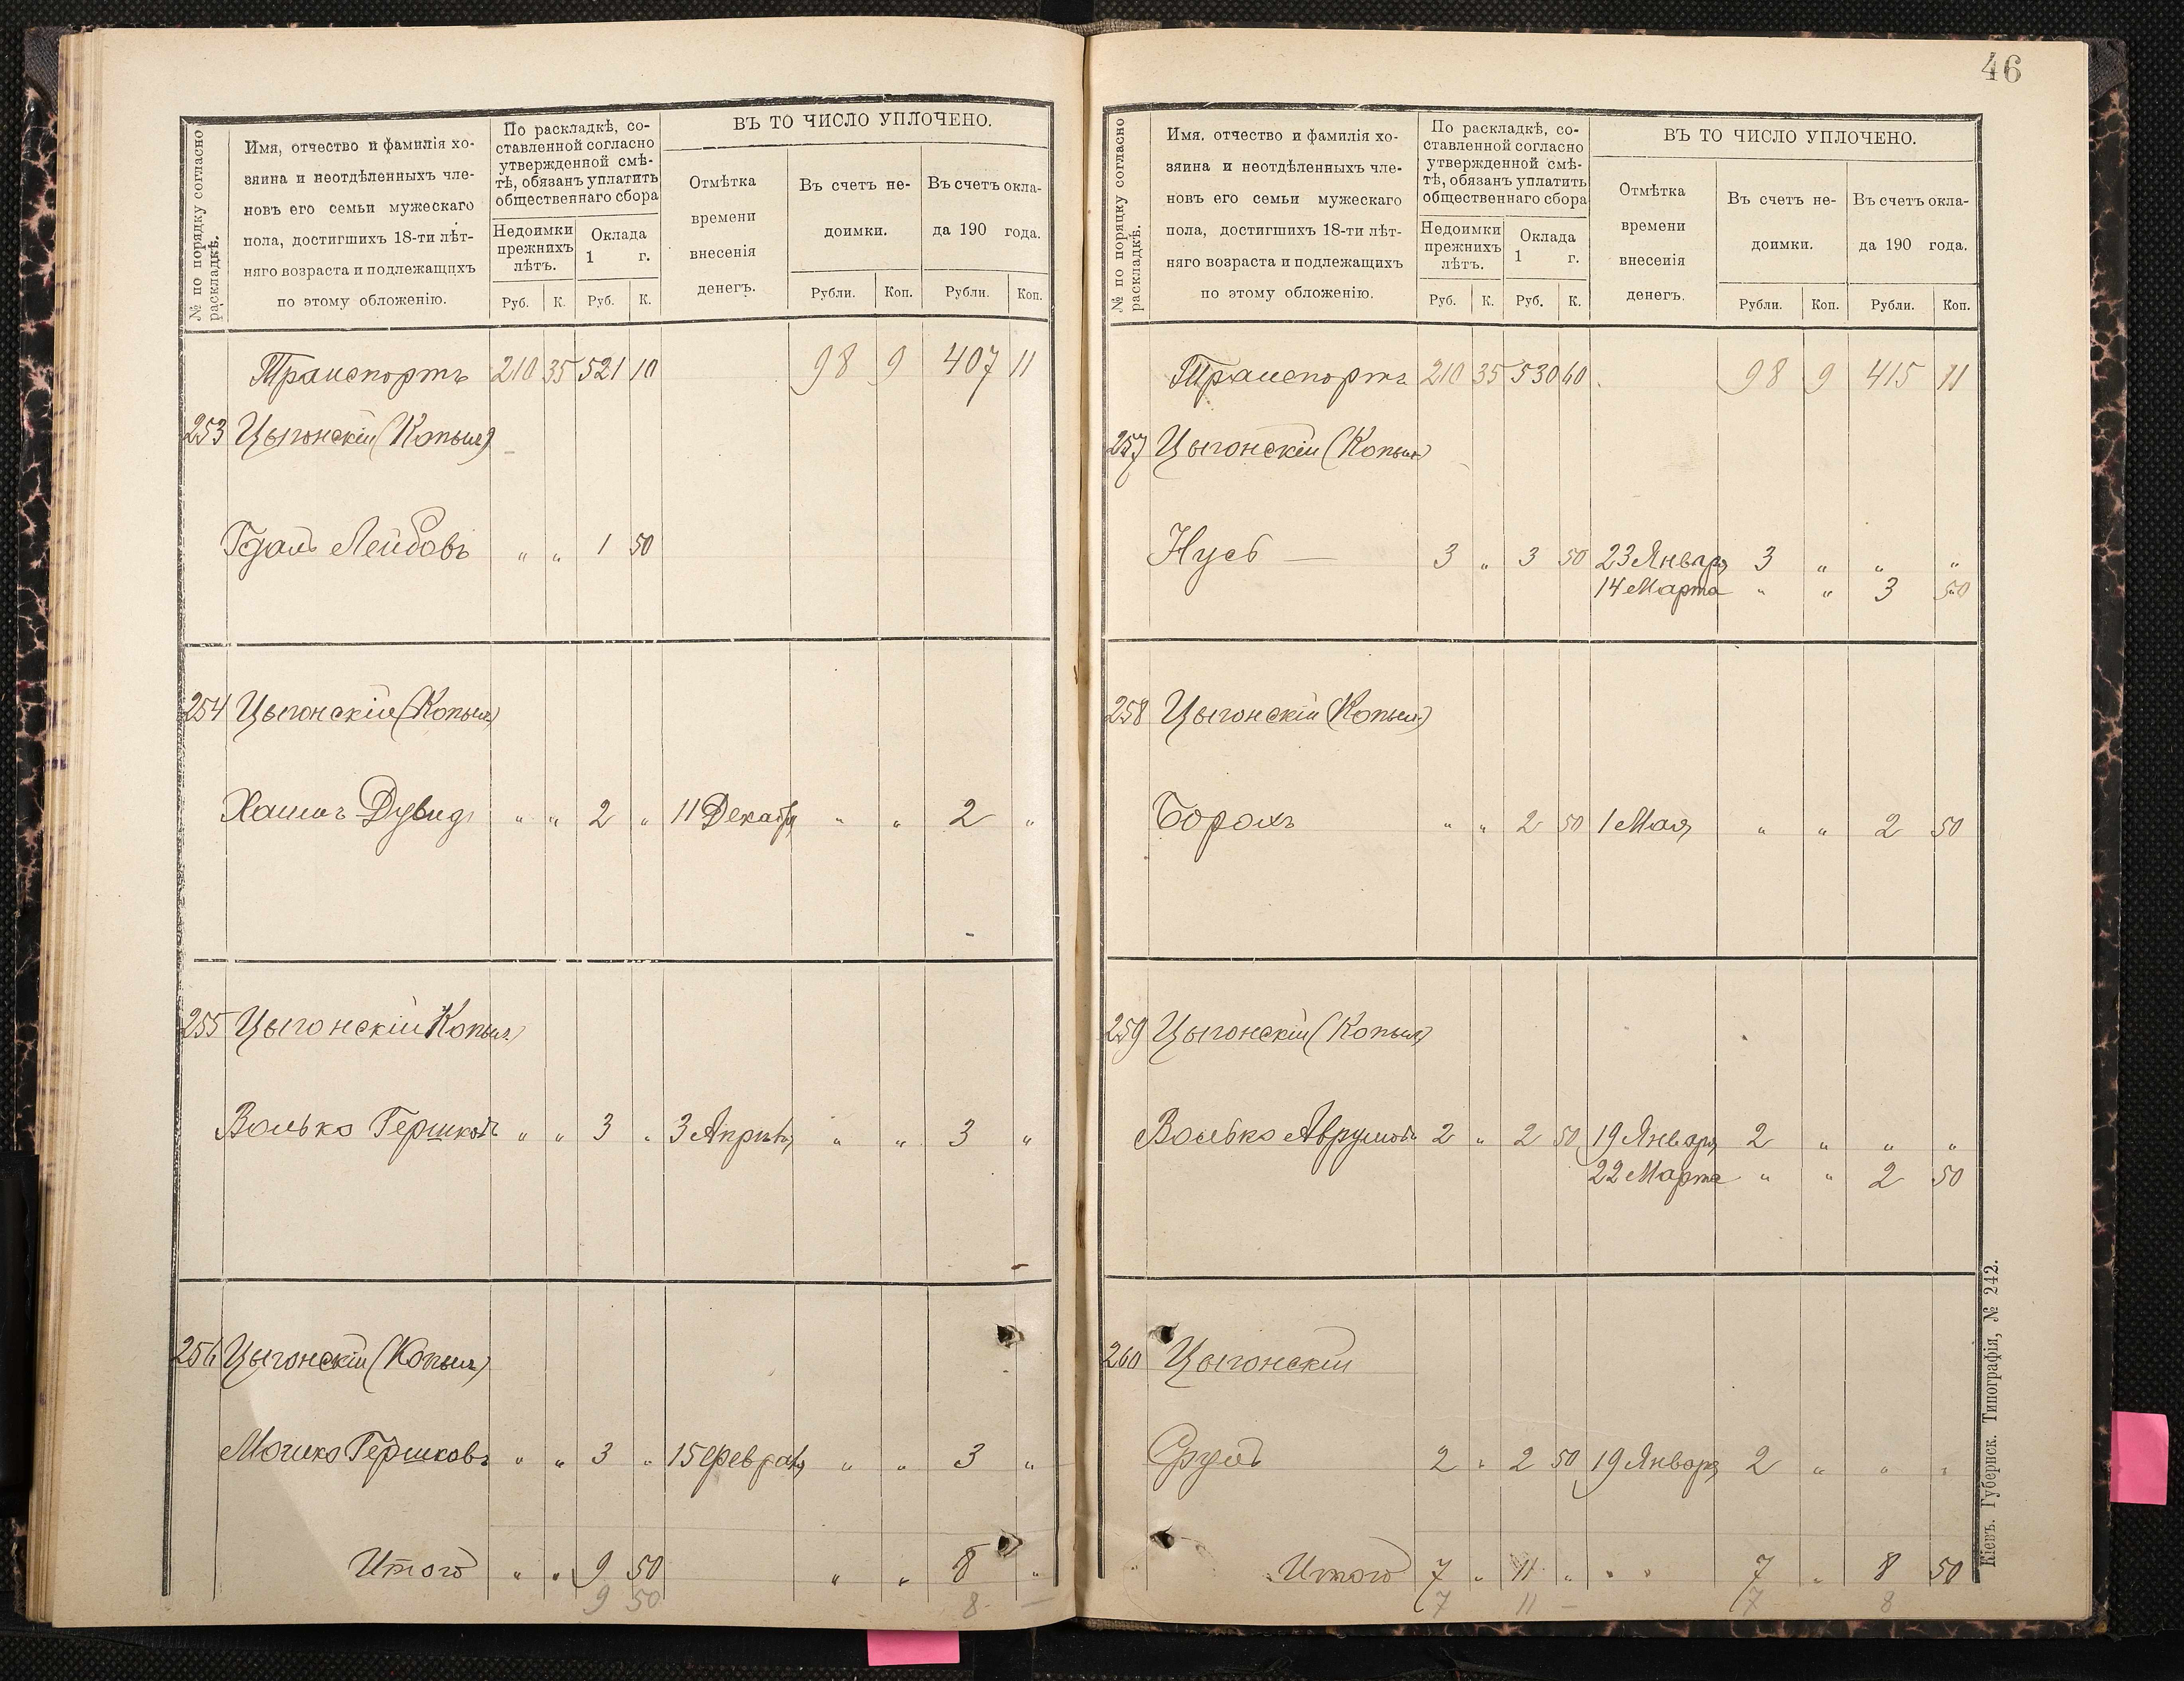 46
№ по порядку согласно раскладкѣ.
Имя, отчество и фамилія хо-
зяина и неотдѣленныхъ чле-
новъ его семьи мужескаго
пола, достигшихъ 18-ти лѣт-
няго возраста и подлежащихъ
по этому обложенію.
По раскладкѣ, со-
ставленной согласно
утвержденной смѣ-
тѣ, обязанъ уплатить
общественнаго сбора
Недоимки прежнихъ лѣтъ.
Оклада 1 г.
Руб. К. Руб. К.
ВЪ ТО ЧИСЛО УПЛОЧЕНО.
Отмѣтка
времени
внесенія
денегъ.
Въ счетъ не-
доимки.
Рубли. Коп.
Въ счетъ окла-
да 190 года.
Рубли. Коп.
Транспортъ 210 35 521 10 98 9 407 11
253 Цыгонскій (Копыл)
Гдаль Лейбовъ " " 1 50
254 Цыгонскій (Копыл)
Хаимъ Дувид " " 2 " 11 Декабря " " 2 "
255 Цыгонскій Копыл)
Волько Гершковъ " " 3 " 3 Апрѣля " " 3 "
256 Цыгонскій (Копыл)
Мошко Гершковъ " " 3 " 15 Февраля " " 3 "
Итого " " 9 50 " " 8 "
9 50 8 —
№ по порядку согласно раскладкѣ.
Имя, отчество и фамилія хо-
зяина и неотдѣленныхъ чле-
новъ его семьи мужескаго
пола, достигшихъ 18-ти лѣт-
няго возраста и подлежащихъ
по этому обложенію.
По раскладкѣ, со-
ставленной согласно
утвержденной смѣ-
тѣ, обязанъ уплатить
общественнаго сбора
Недоимки прежнихъ лѣтъ.
Оклада 1 г.
Руб. К. Руб. К.
ВЪ ТО ЧИСЛО УПЛОЧЕНО.
Отмѣтка
времени
внесенія
денегъ.
Въ счетъ не-
доимки.
Рубли. Коп.
Въ счетъ окла-
да 190 года.
Рубли. Коп.
Транспортъ 210 35 530 60 98 9 415 11
257 Цыгонскій (Копыл)
Нусъ — 3 " 3 50 23 Января 3 " " "
14 Марта " " 3 50
258 Цыгонскій (Копыл)
Борохъ " " 2 50 1 Мая " " 2 50
259 Цыгонскій (Копыл)
Волько Аврумовъ 2 " 2 50 19 Января 2 " " "
22 Марта " " 2 50
260 Цыгонскій
Сруль 2 " 2 50 19 Января 2 " " "
Итого 7 " 11 " " " 7 " 8 50
7 11 — 7 8
Кіевъ. Губернск. Типографія, № 242.